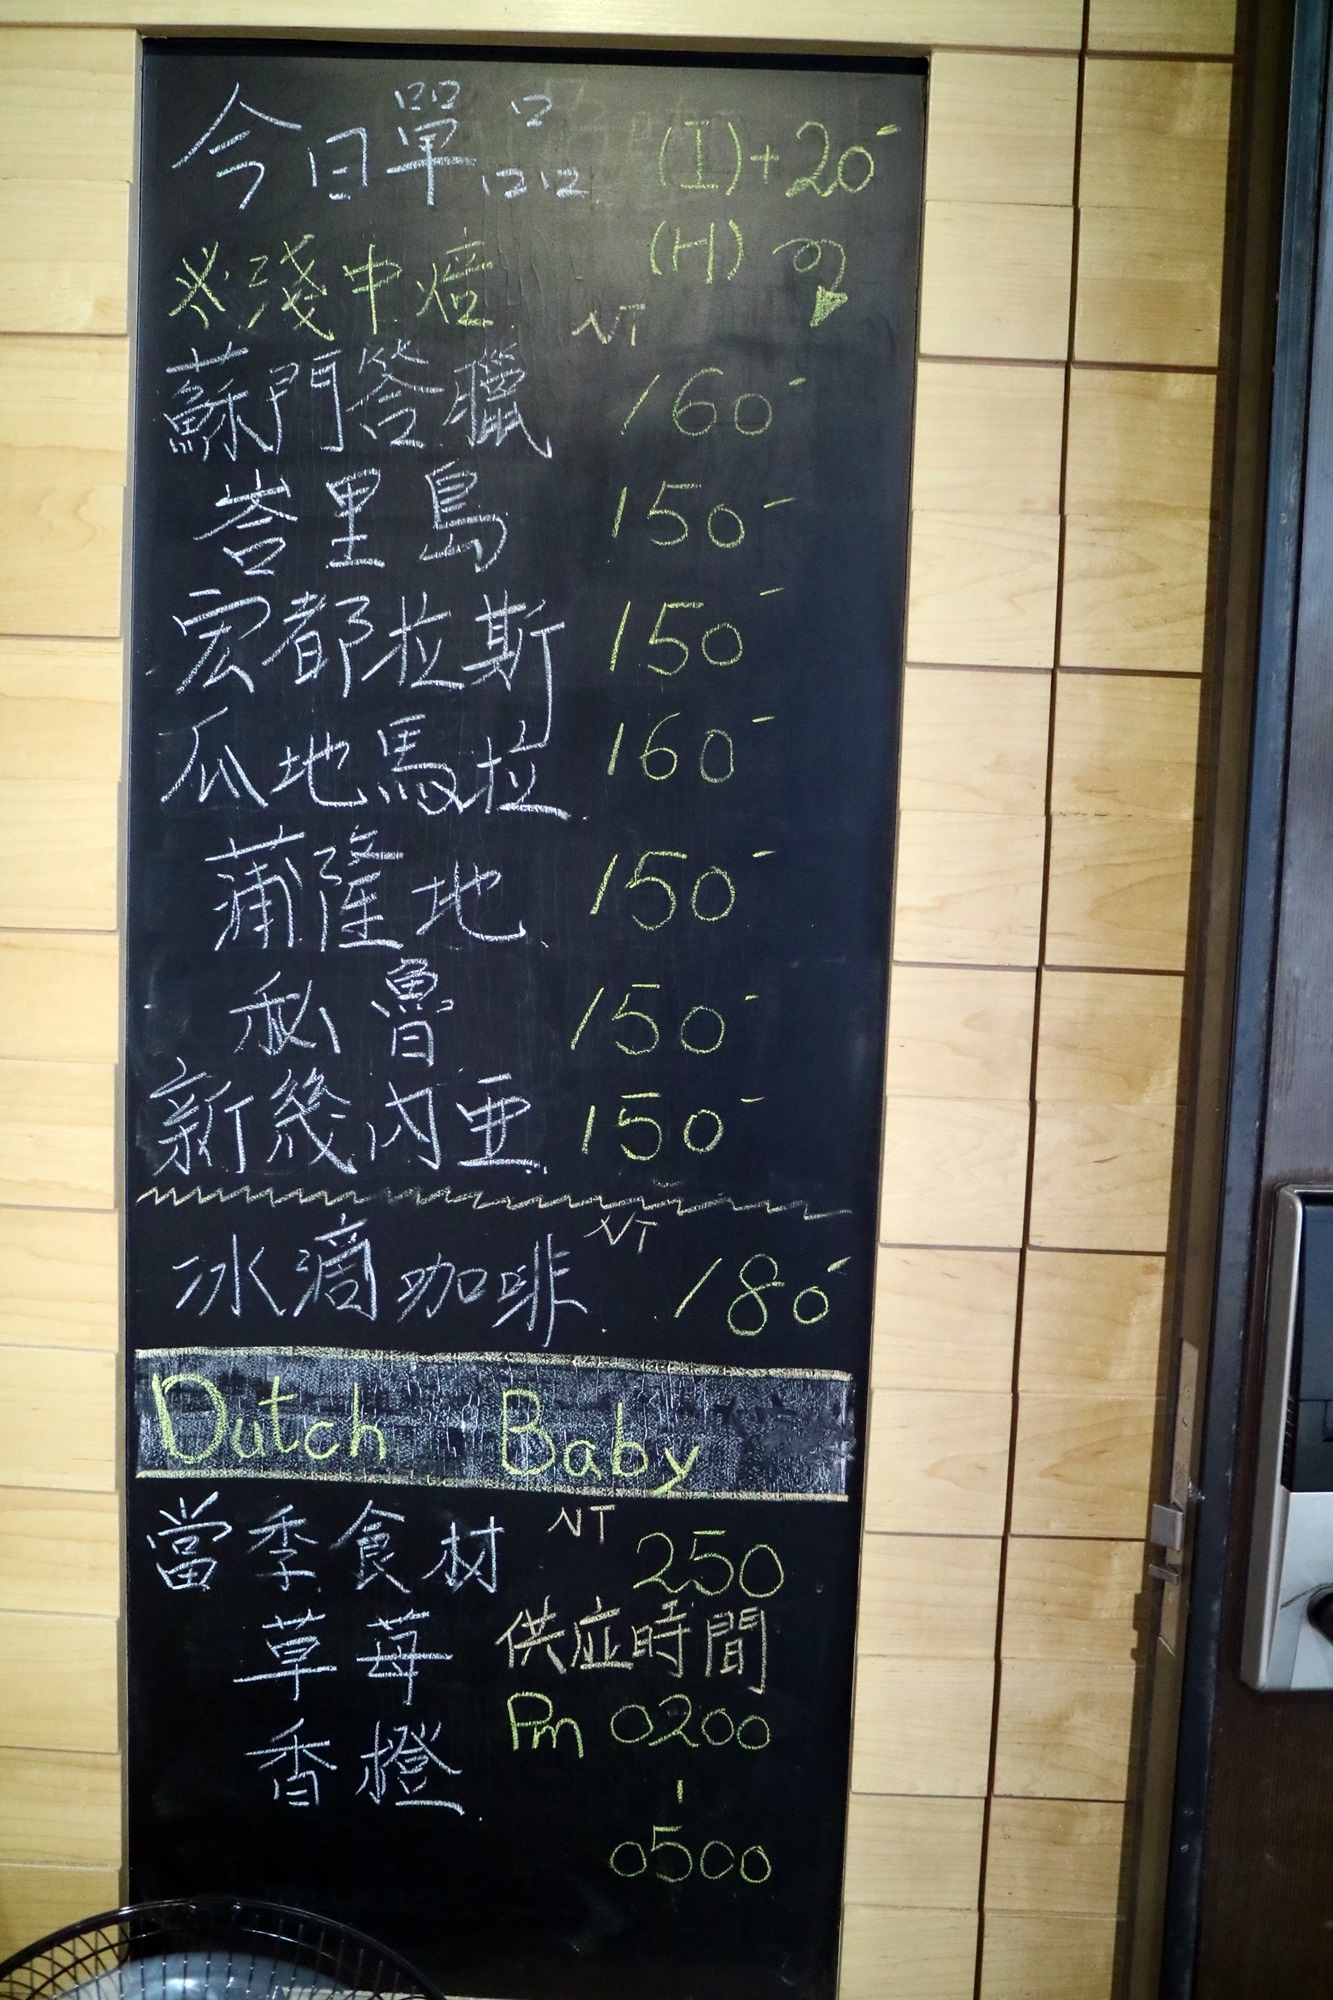 今日單品 (I)+20
※淺中焙 (H)
NT
蘇門答臘 160
峇里島 150
宏都拉斯 150
瓜地馬拉 160
蒲隆地 150
秘魯 150
新幾內亜 150
NT
冰滴咖啡 180
Dutch Baby
當季食材 NT 250
草莓 供应時間
香橙 Pm 0200
-
0500